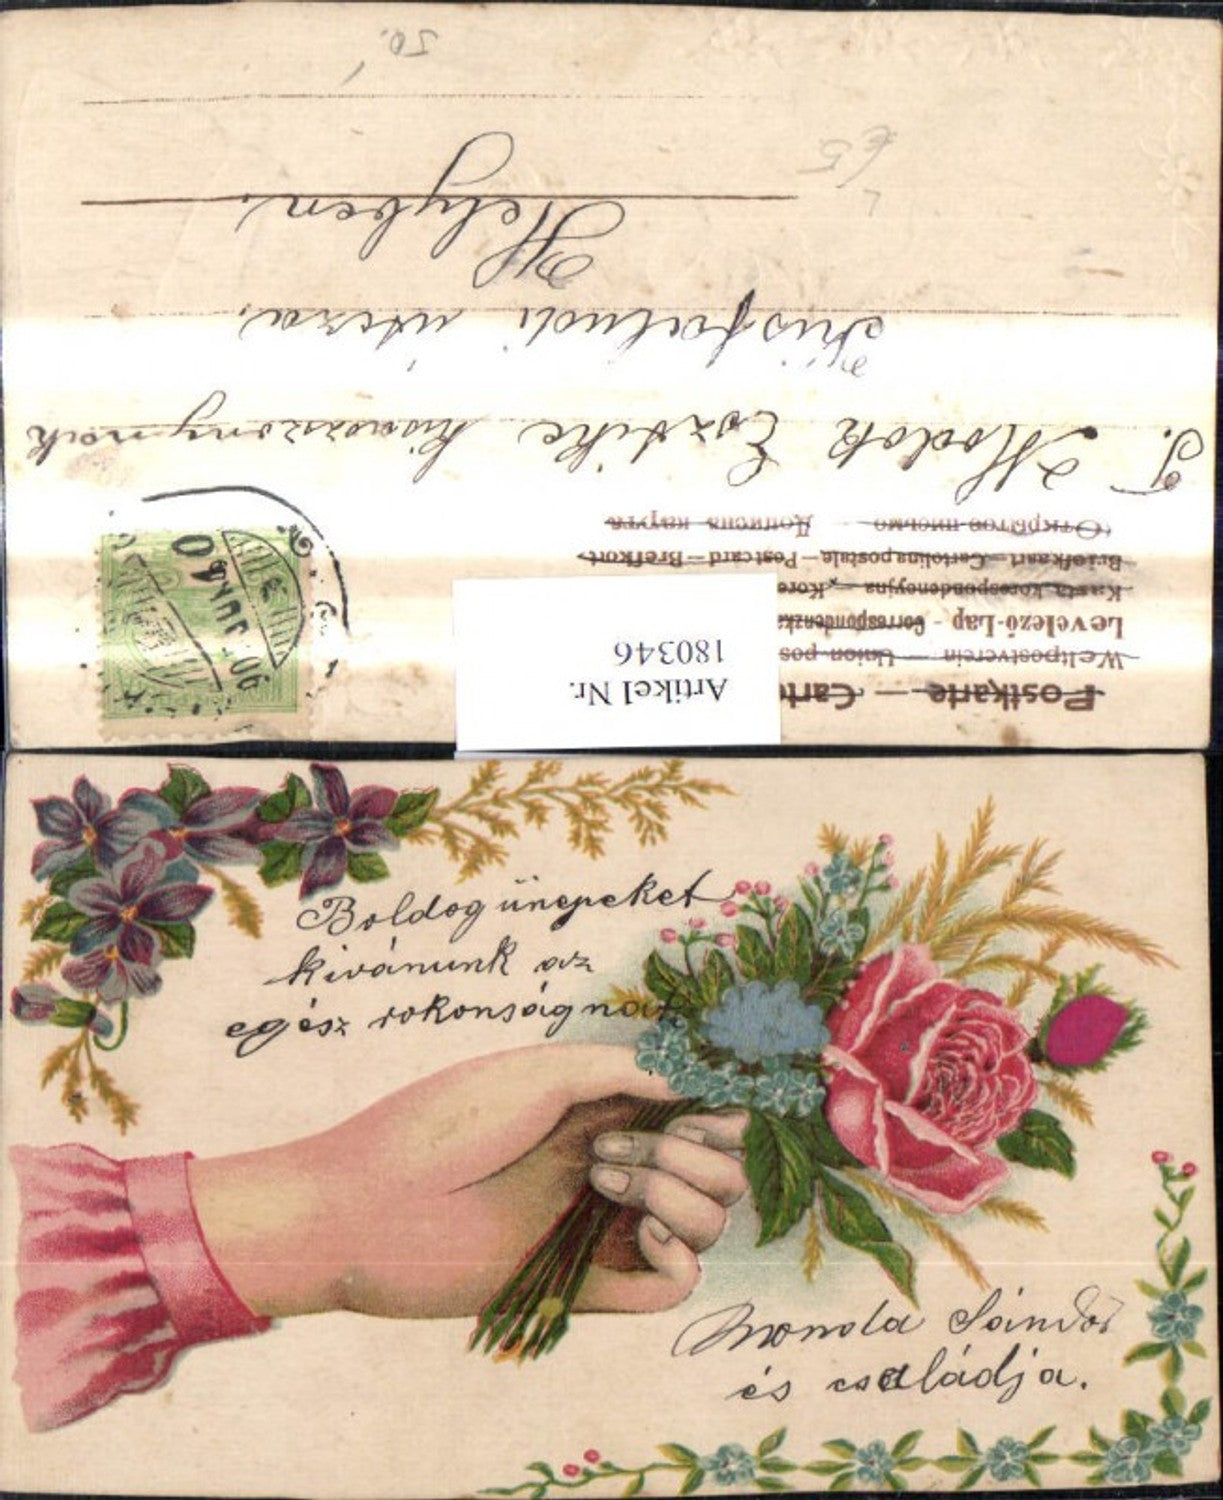 Postkarte — Carte
Weltpostverein — Union pos
Levelező-Lap - Correspondenzka
Karta korespondencyjna — Kore
Briefkaart — Cartolina postale — Postcard — Brefkort.
Открытое письмо — Дописна карта
Artikel Nr.
180346
90 JUN
T. Modok Esztike kisasszonynak
Kisfaludi utcza.
Helyben.
€5
50.
Boldog ünnepeket
kivánunk az
egész rokonságnak
Monda Sándor
és családja.